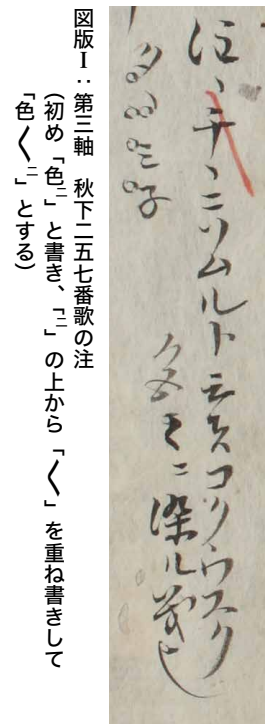 注、千、ニソムルト云ハコクウスク
色〱ニ染ル義也
図版Ⅰ：第三軸　秋下二五七番歌の注
（初め「色ニ」と書き、「ニ」の上から「〱」を重ね書きして
「色〱ニ」とする）